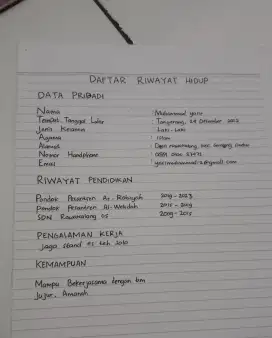 DAFTAR RIWAYAT HIDUP
DATA PRIBADI
Nama : Muhammad yasir
Tempat, Tanggal Lahir : Tangerang, 24 Desember 2002
Jenis Kelamin : Laki-Laki
Agama : Islam
Alamat
Nomor Handphone
Email
RIWAYAT PENDIDIKAN
Pondok Pesantren Ar-Rabiyah 2019 - 2023
Pondok Pesantren Al-Wahdah 2015 - 2019
SDN Rawarotang 05 2009 - 2015
PENGALAMAN KERJA
Jaga stand es teh solo
KEMAMPUAN
Mampu Bekerjasama dengan tim
Jujur, Amanah